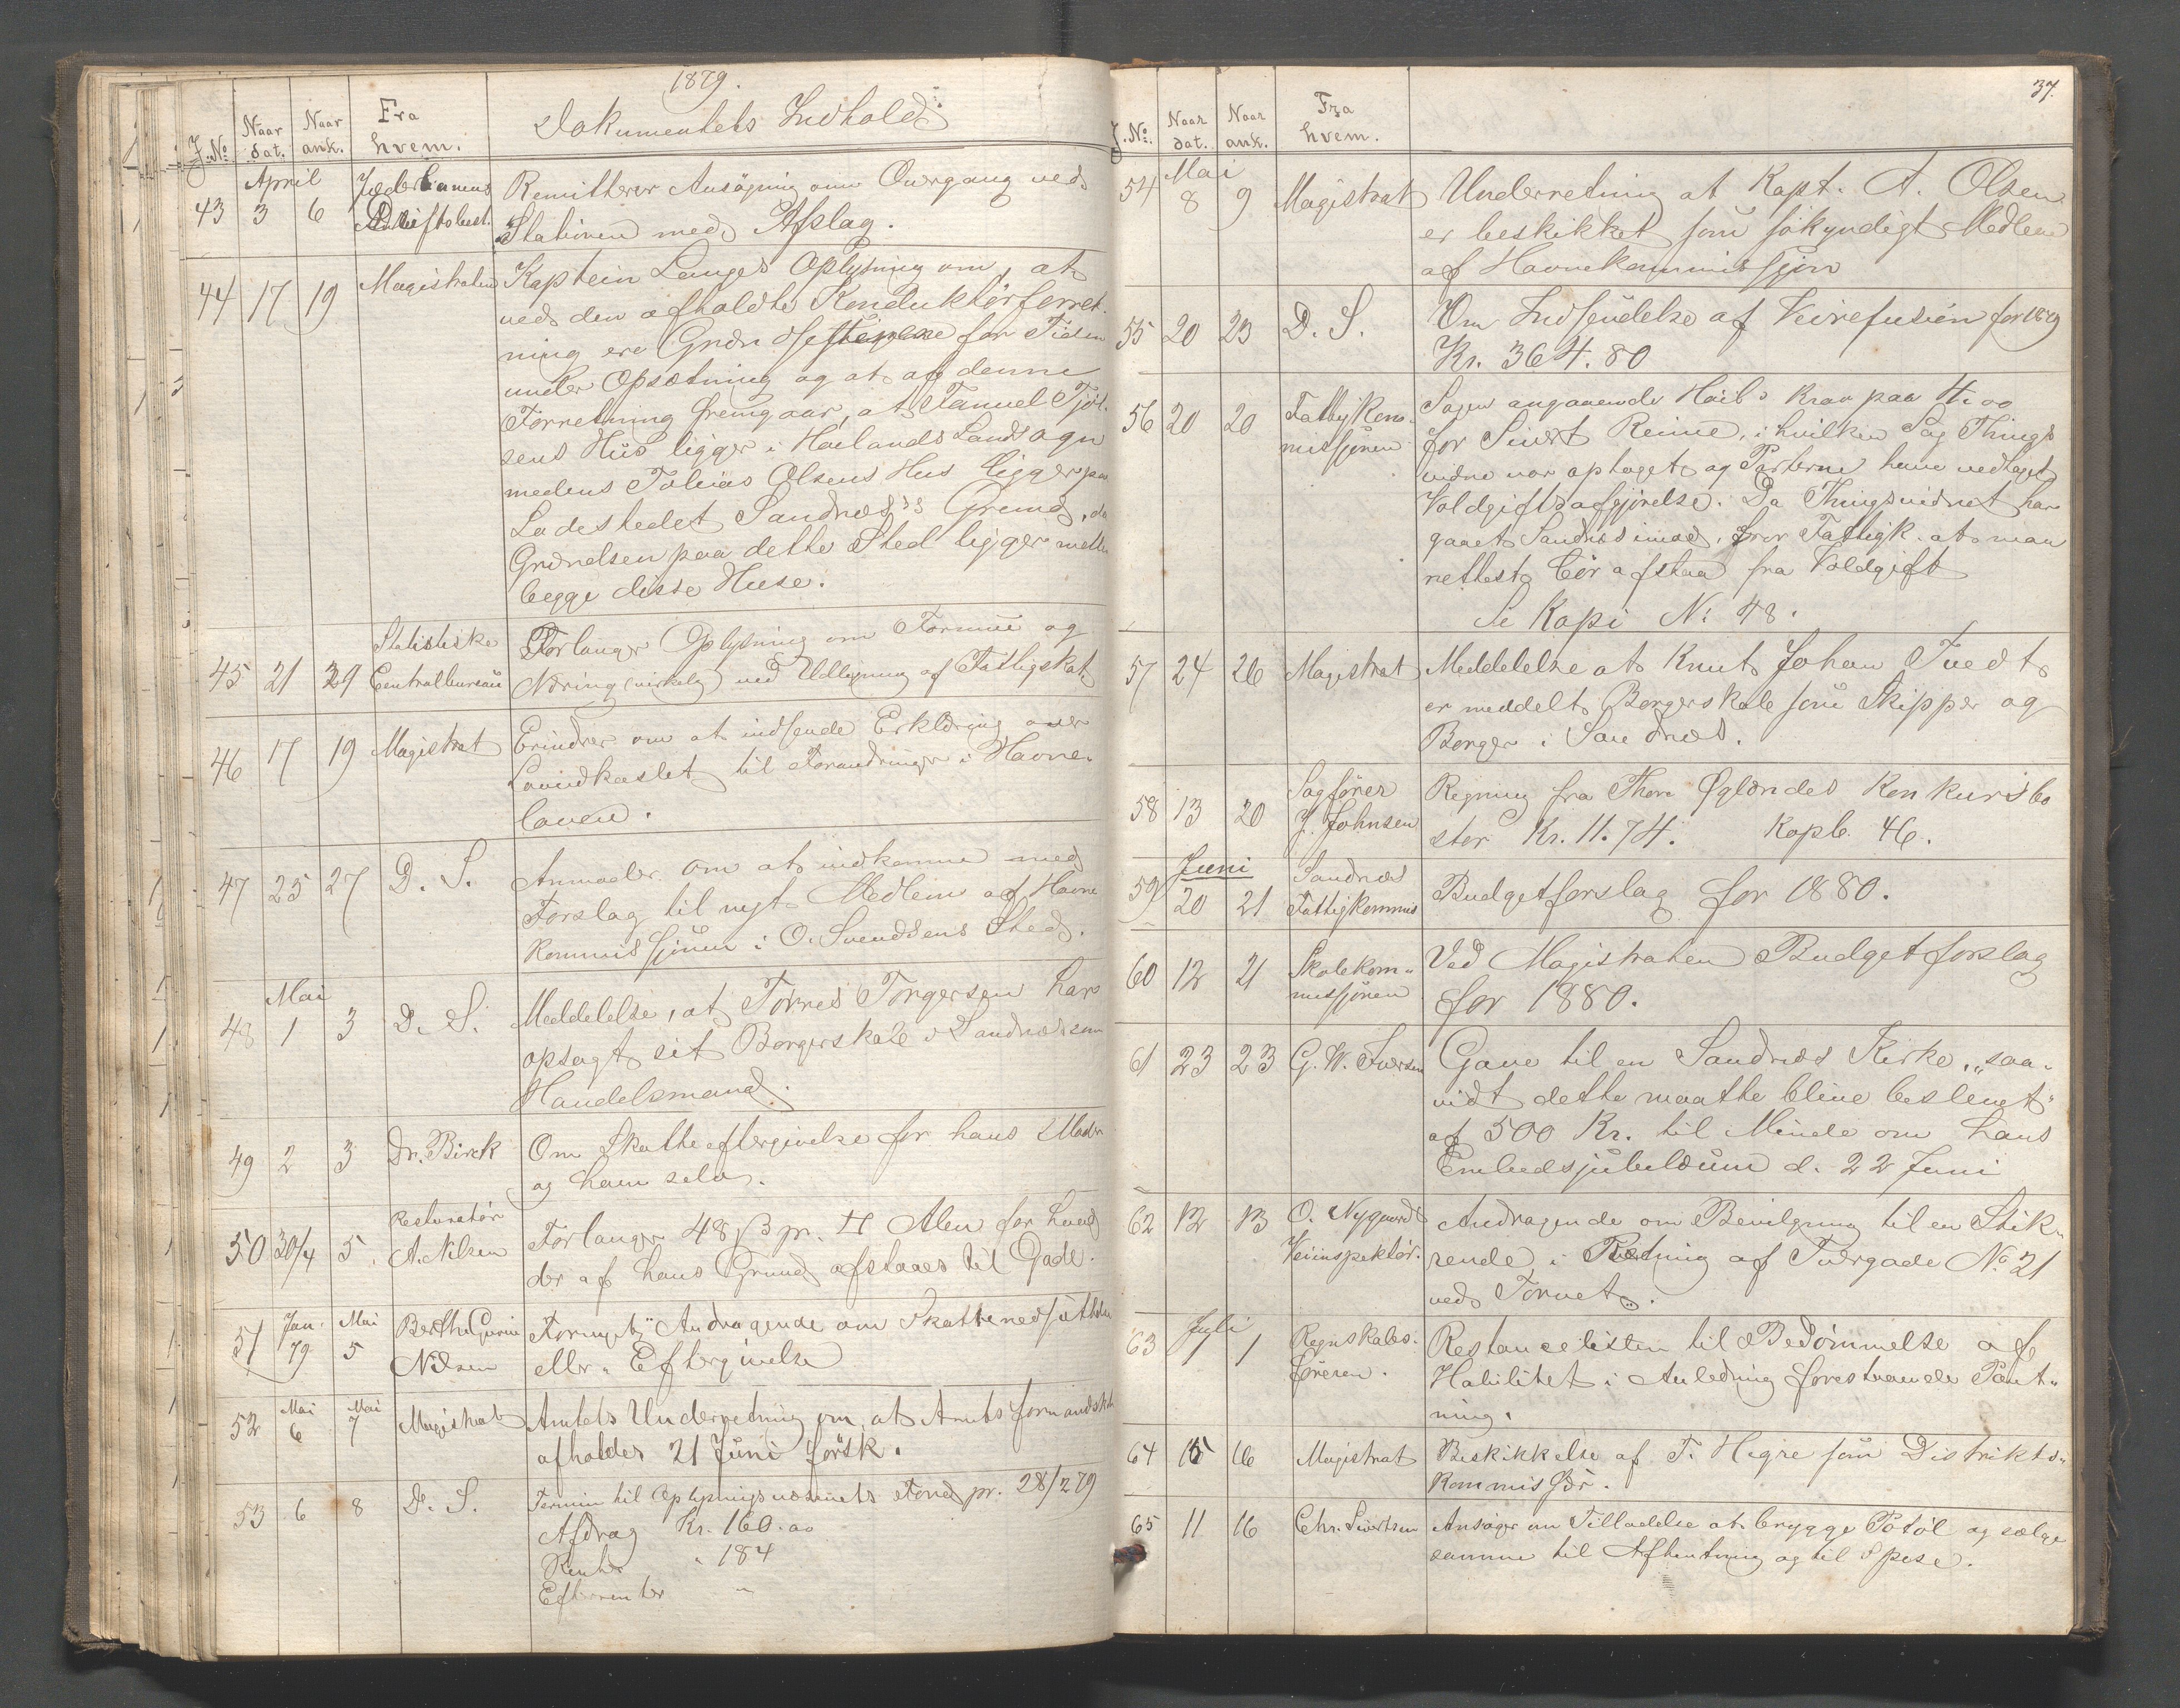 1879.
J. No Naar dat. Naar ank. Fra hvem. Dokumentets Indhold:
April
43 3 6 Jæderbanens Driftsbest. Remitterer Ansögning om Overgang ved
Stationen med Afslag.
44 17 19 Magistraten Kaptein Langes Oplysning om, at
ved den afholdte Konduktörforret-
ning ere Grændse for Tiden
under Opsætning og at af denne
Forretning fremgaar, at Samuel Tjöl-
sens Hus ligger i Höilands Landsogn
medens Tobias Olsens Hus ligger paa
Ladestedet Sandnæs's Grund, da
Grændsen paa dette Sted ligger mellem
begge disse Huse.
45 21 29 Statistiske Centralbureau Forlanger Oplysning om Formue og
Næring (virkelig) ved Udligning af Fattigskat.
46 17 19 Magistrat Erindrer om at indsende Erklæring over
Lovudkastet til Forandringer i Havne-
loven.
47 25 27 D. S. Anmoder om at indkomme med
Forslag til nyt Medlem af Havne
kommissjonen i O. Svendsens Sted.
Mai
48 1 3 D. S. Meddelelse, at Tönnes Torgersen har
opsagt sit Borgerskab i Sandnæs som
Handelsmand.
49 2 3 Dr. Birck Om Skatteeftergivelse for hans Moder
og ham selv.
50 30/4 5. Restoratör A. Nilsen Forlanger 48 β pr. □ Alen for hvad
der af hans Grund afstaaes til Gade.
51 Jan. 79 Mai 5 Berthe Gurine Nilsen Fornyet Andragende om Skattenedsættelse
eller Eftergivelse
52 Mai 6 Mai 7 Magistrat Amtets Underretning om, at Amtsformandskab
afholdes 21 Juni förstk.
53 6 8 D. S. Termin til Oplysningsvæsenets Fond pr. 28/2 79
Afdrag Kr. 160.00
Renter " 184
Efterrenter "
37.
J. No. Naar dat. Naar ank. Fra hvem.
Mai
54 8 9 Magistrat Underretning at Kapt. A. Olsen
er beskikket som sökyndigt Medlem
af Havnekommissjon
55 20 23 D. S. Om Indsendelse af Veirefusion for 1879
Kr. 364.80
56 20 20 Fattigkommissjonen Sagen angaaende Krav paa
for Sivert Reinne, i hvilken Sag Things
vidne var optaget og Parterne have vedtaget
Voldgiftsafgjörelse. Da Thingsvidnet har
gaaet Sandnæs imod, tror Fattigk. at man
rettest bör afstaa fra Voldgift
Se Kopi No 48.
57 24 26 Magistrat Meddelelse at Knut Johan Tvedt
er meddelt Borgerskab som Skipper og
Borger i Sandnæs.
58 13 20 Sagförer J. Johnsen Regning fra Thore Øglændes Konkursbo
stor Kr. 11.74. Kopb. 46.
Juni
59 20 21 Sandnæs Fattigkommis Budgetforslag for 1880.
60 12 21 Skolekommissjonen Ved Magistraten Budgetforslag
for 1880.
61 23 23 G. W. Iversen Gave til en Sandnæs Kirke, „saa-
vidt dette maatte blive besluttet"
af 500 Kr. til Minde om hans
Embedsjubelæum d. 22 Juni
62 12 13 O. Nygaard Veiinspektör. Andragende om Bevilgning til en Stik-
rende i Retning af Tvergade No 21
ved Torvet.
Juli
63 1 1 Regnskabsföreren. Restancelisten til Bedömmelse af
Habilitet i Anledning forestaaende Pant-
ning.
64 15 16 Magistrat Beskikkelse af T. Hegre som Distrikts-
kommissær.
65 11 16 Chr. Sivertsen Ansöger om Tilladelse at brygge Potöl og sælge
samme til Afhentning og til Spise.